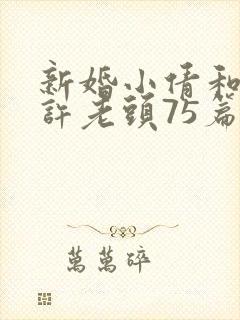 新婚小倩和
許老頭75篇
萬萬碎